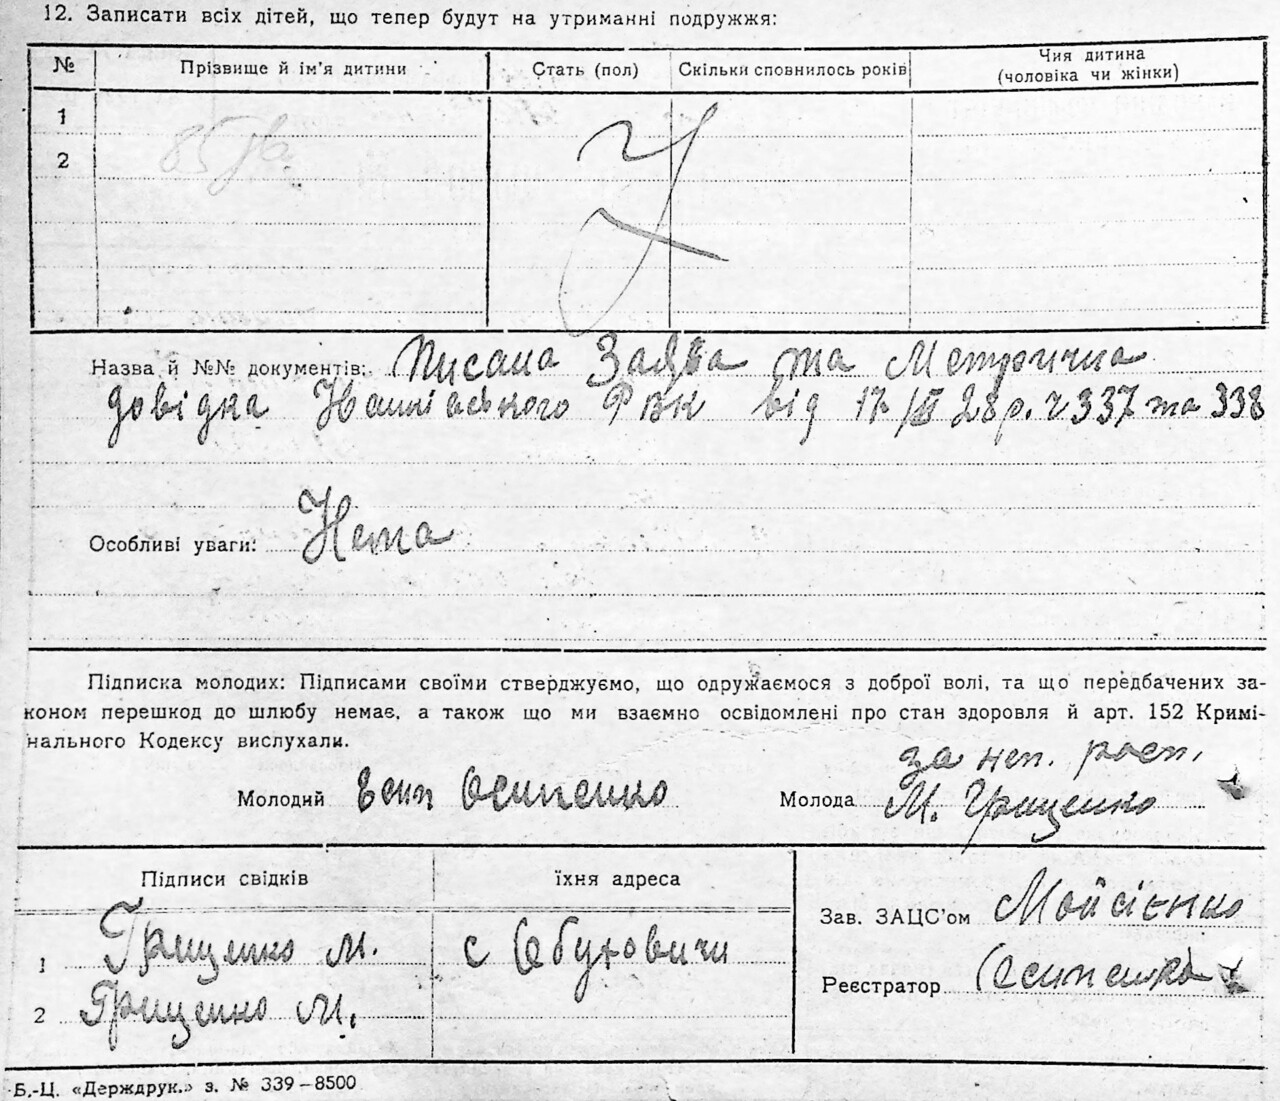 12. Записати всіх дітей, що тепер будут на утриманні подружжя:
№ Прізвище й ім'я дитини Стать (пол) Скільки сповнилось років Чия дитина (чоловіка чи жінки)
1
2
Назва й №№ документів: Писана Заява та Метрична
довідка РВК від 17/III 28 р. ч 337 та 338
Особливі уваги: Нема
Підписка молодих: Підписами своїми стверджуємо, що одружаємося з доброї волі, та що передбачених за-
коном перешкод до шлюбу немає, а також що ми взаємно освідомлені про стан здоровля й арт. 152 Кримі-
нального Кодексу вислухали.
за неп. росп.
Молодий Есип Осипенко Молода М. Грищенко
Підписи свідків їхня адреса
1 Грищенко М. с Обуховичи
2 Грищенко М.
Зав. ЗАЦС'ом Мойсієнко
Реєстратор Осипенко
Б.-Ц. «Держдрук.» з. № 339–8500